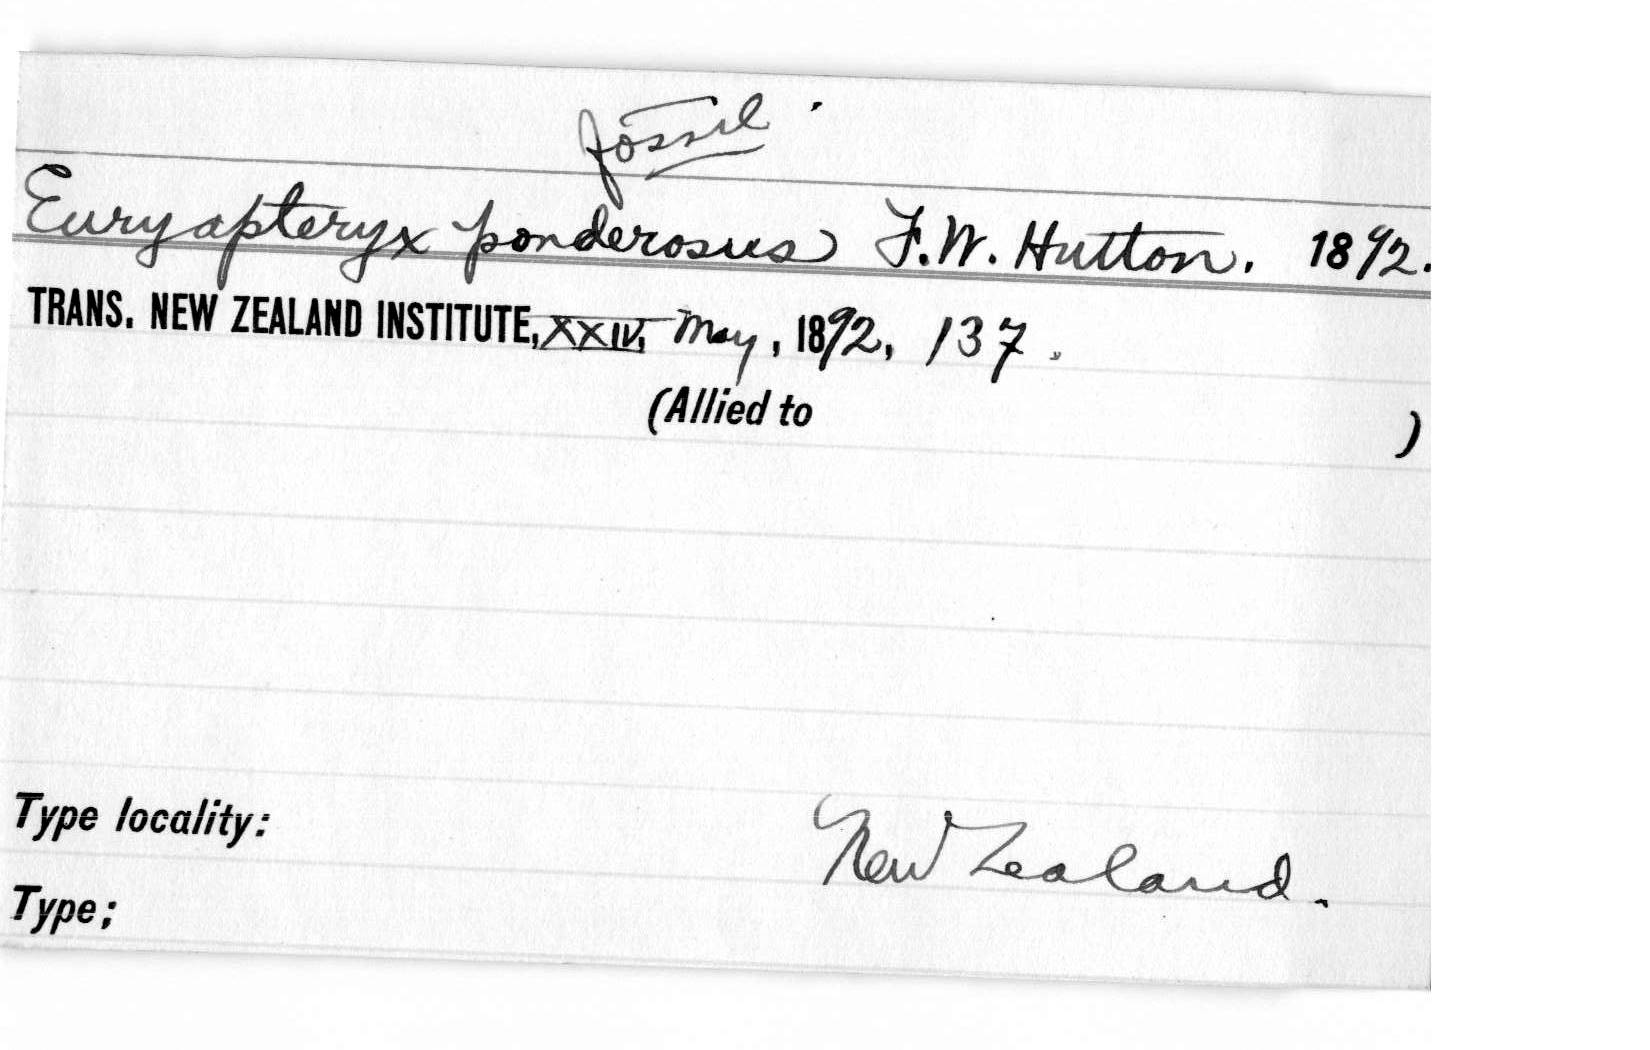 fossil
Euryapteryx ponderosus F.W. Hutton. 1892.
TRANS. NEW ZEALAND INSTITUTE, XXIV, May, 1892, 137.
(Allied to )
Type locality: New Zealand.
Type;